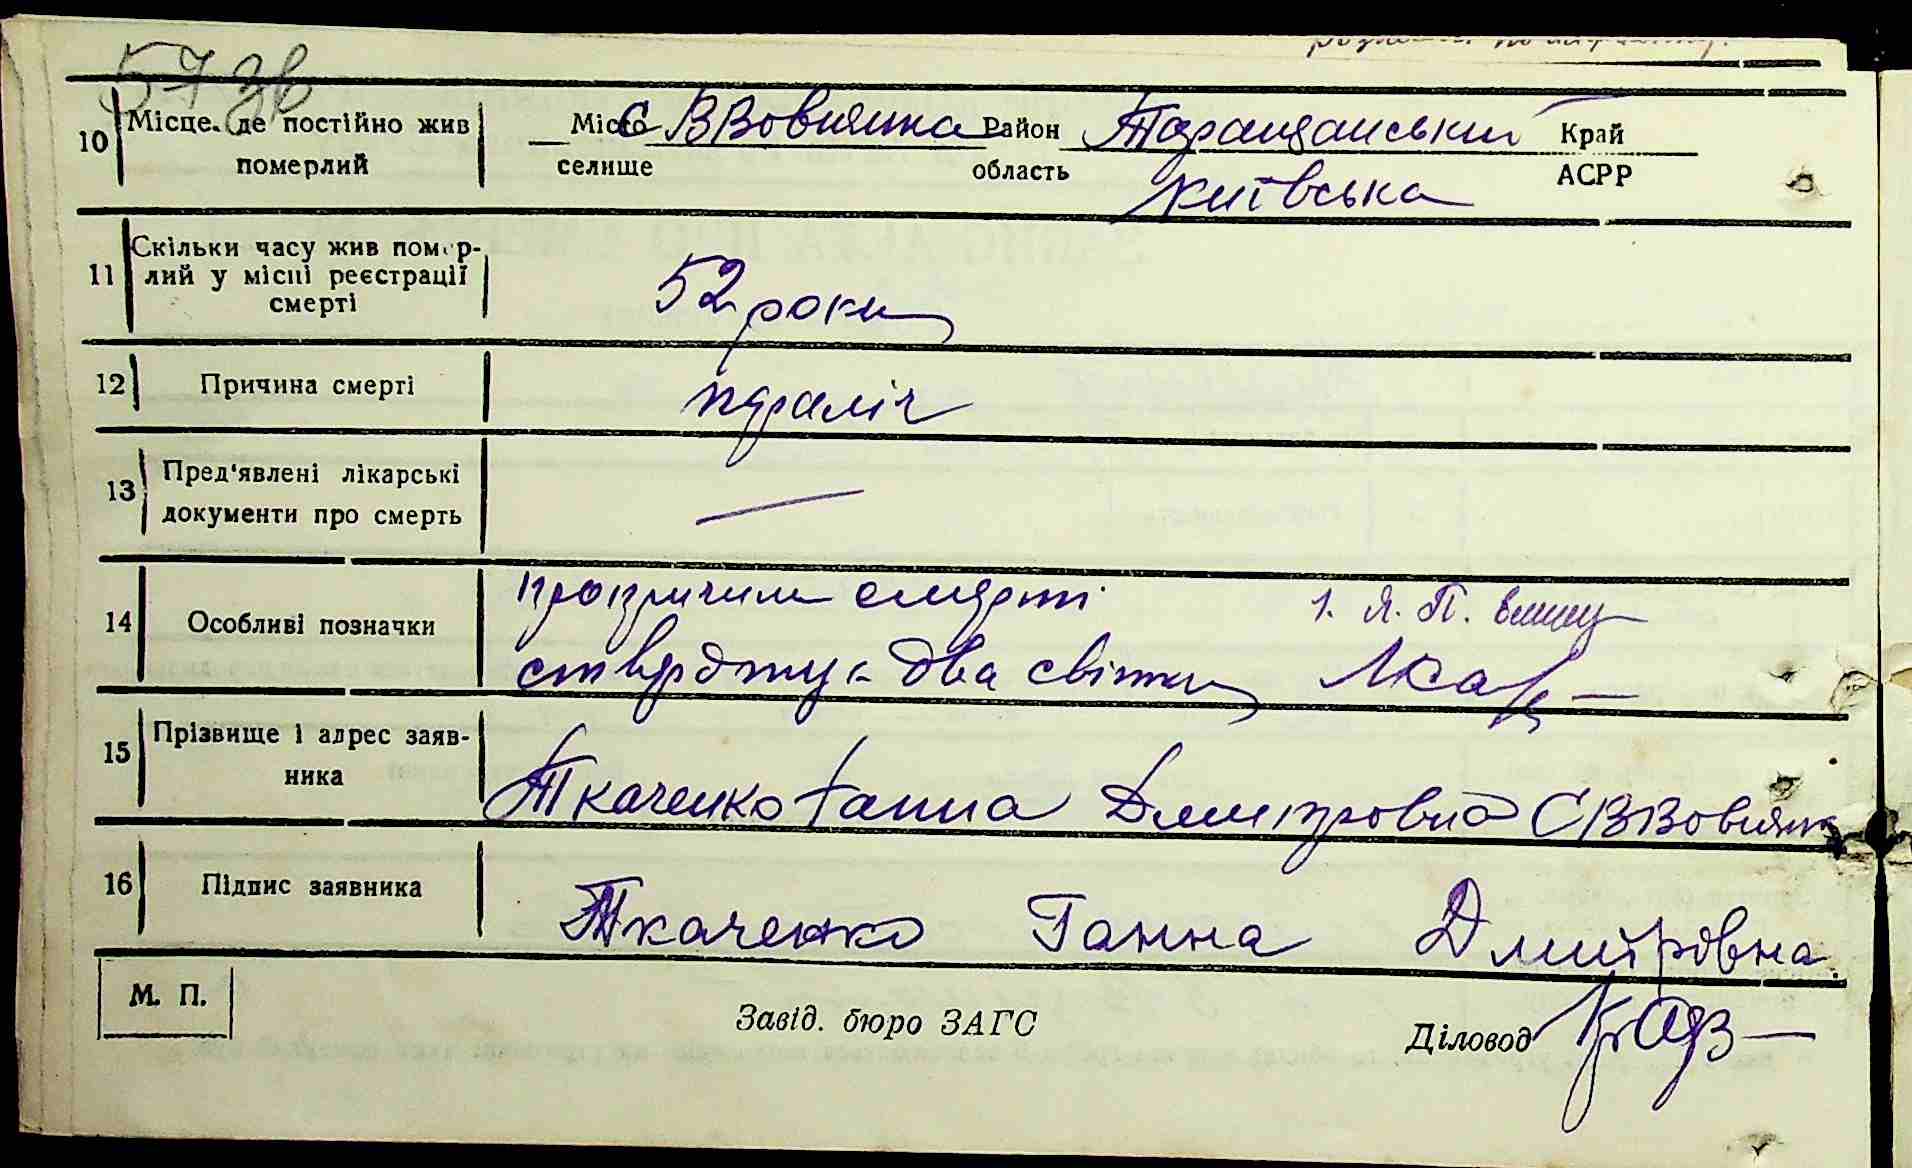 57 зв
10 Місце, де постійно жив померлий
Місто селище с ВВовнянка Район область Таращанський Край АСРР
Київська
11 Скільки часу жив помер-
лий у місці реєстрації
смерті
52 роки
12 Причина смерті параліч
13 Пред'явлені лікарські
документи про смерть —
14 Особливі позначки
пропричини смерті
стверджує два світки
1. Я. П.
15 Прізвище і адрес заяв-
ника
Ткаченко Ганна Дмитровна С ВВовнянка
16 Підпис заявника Ткаченко Ганна Дмитровна.
М. П.
Завід. бюро ЗАГС
Діловод